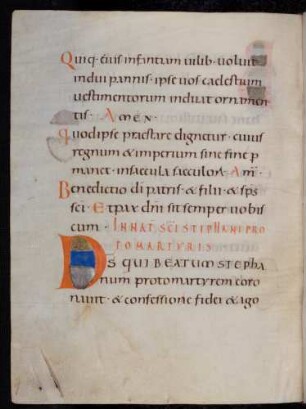 Qui q; eius infantiam uilib; uoluit
indui pannis · ipse uos caelestium
uestimentorum induat ornamen
tis · Amen ·
Quod ipse praestare dignetur · cuius
regnum & imperium sine fine p
manet · in saecula saeculorum · Am̄
Benedictio dī patris · & filii · & sp̄s
sc̄i · Et pax dn̄i sit semper uobis
cum · IN NAT SC̄I STEPHANI PRO
TOMARTYRIS
DS̄ QUI BEATUM STEPHA
num protomartyrem coro
nauit · & confessione fidei & ago